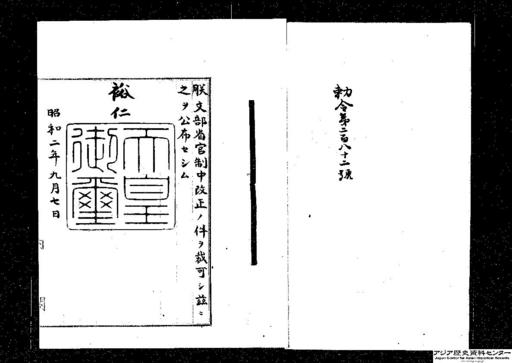 勅令第二百八十二號
朕文部省官制中改正ノ件ヲ裁可シ茲ニ
之ヲ公布セシム
裕仁
天皇
御璽
昭和二年九月七日
アジア歴史資料センター
Japan Center for Asian Historical Records